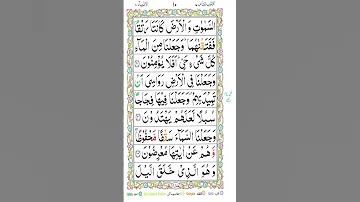 السَّمٰوٰتِ وَ الْاَرْضَ كَانَتَا رَتْقًا
فَفَتَقْنٰهُمَا ؕ وَ جَعَلْنَا مِنَ الْمَآءِ
كُلَّ شَیْءٍ حَیٍّ ؕ اَفَلَا یُؤْمِنُوْنَ
وَ جَعَلْنَا فِی الْاَرْضِ رَوَاسِیَ اَنْ
تَمِیْدَ بِهِمْ ۪ وَ جَعَلْنَا فِیْهَا فِجَاجًا
سُبُلًا لَّعَلَّهُمْ یَهْتَدُوْنَ
وَ جَعَلْنَا السَّمَآءَ سَقْفًا مَّحْفُوْظًا ۖۚ
وَّ هُمْ عَنْ اٰیٰتِهَا مُعْرِضُوْنَ
وَ هُوَ الَّذِیْ خَلَقَ الَّیْلَ